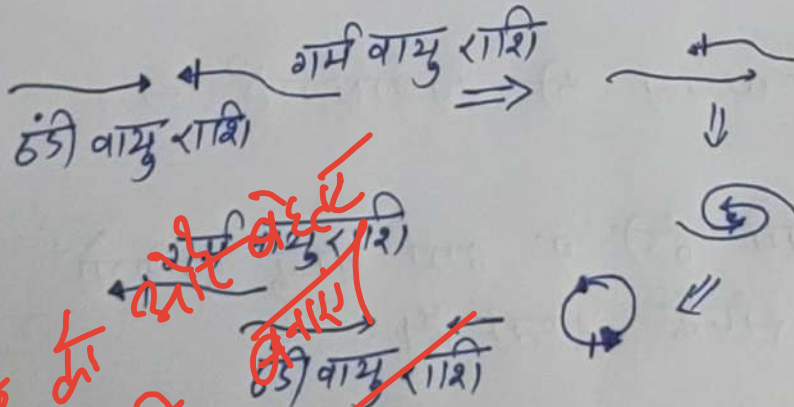 गर्म वायु राशि
ठंडी वायु राशि
गर्म वायु राशि
ठंडी वायु राशि
को और बेहतर
बनाएं